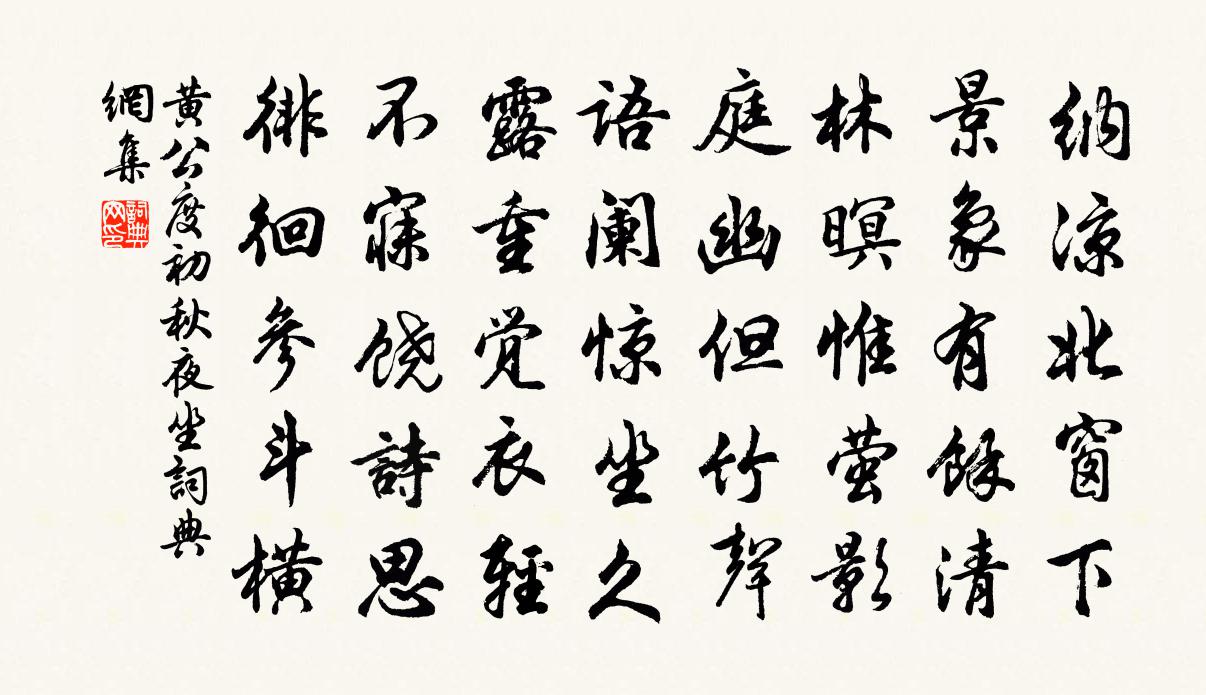 纳凉北窗下
景象有馀清
林暝惟萤影
庭幽但竹声
语阑惊坐久
露重觉衣轻
不寐饶詩思
徘徊参斗横
黄公度初秋夜坐詞典
網集
詞典网印